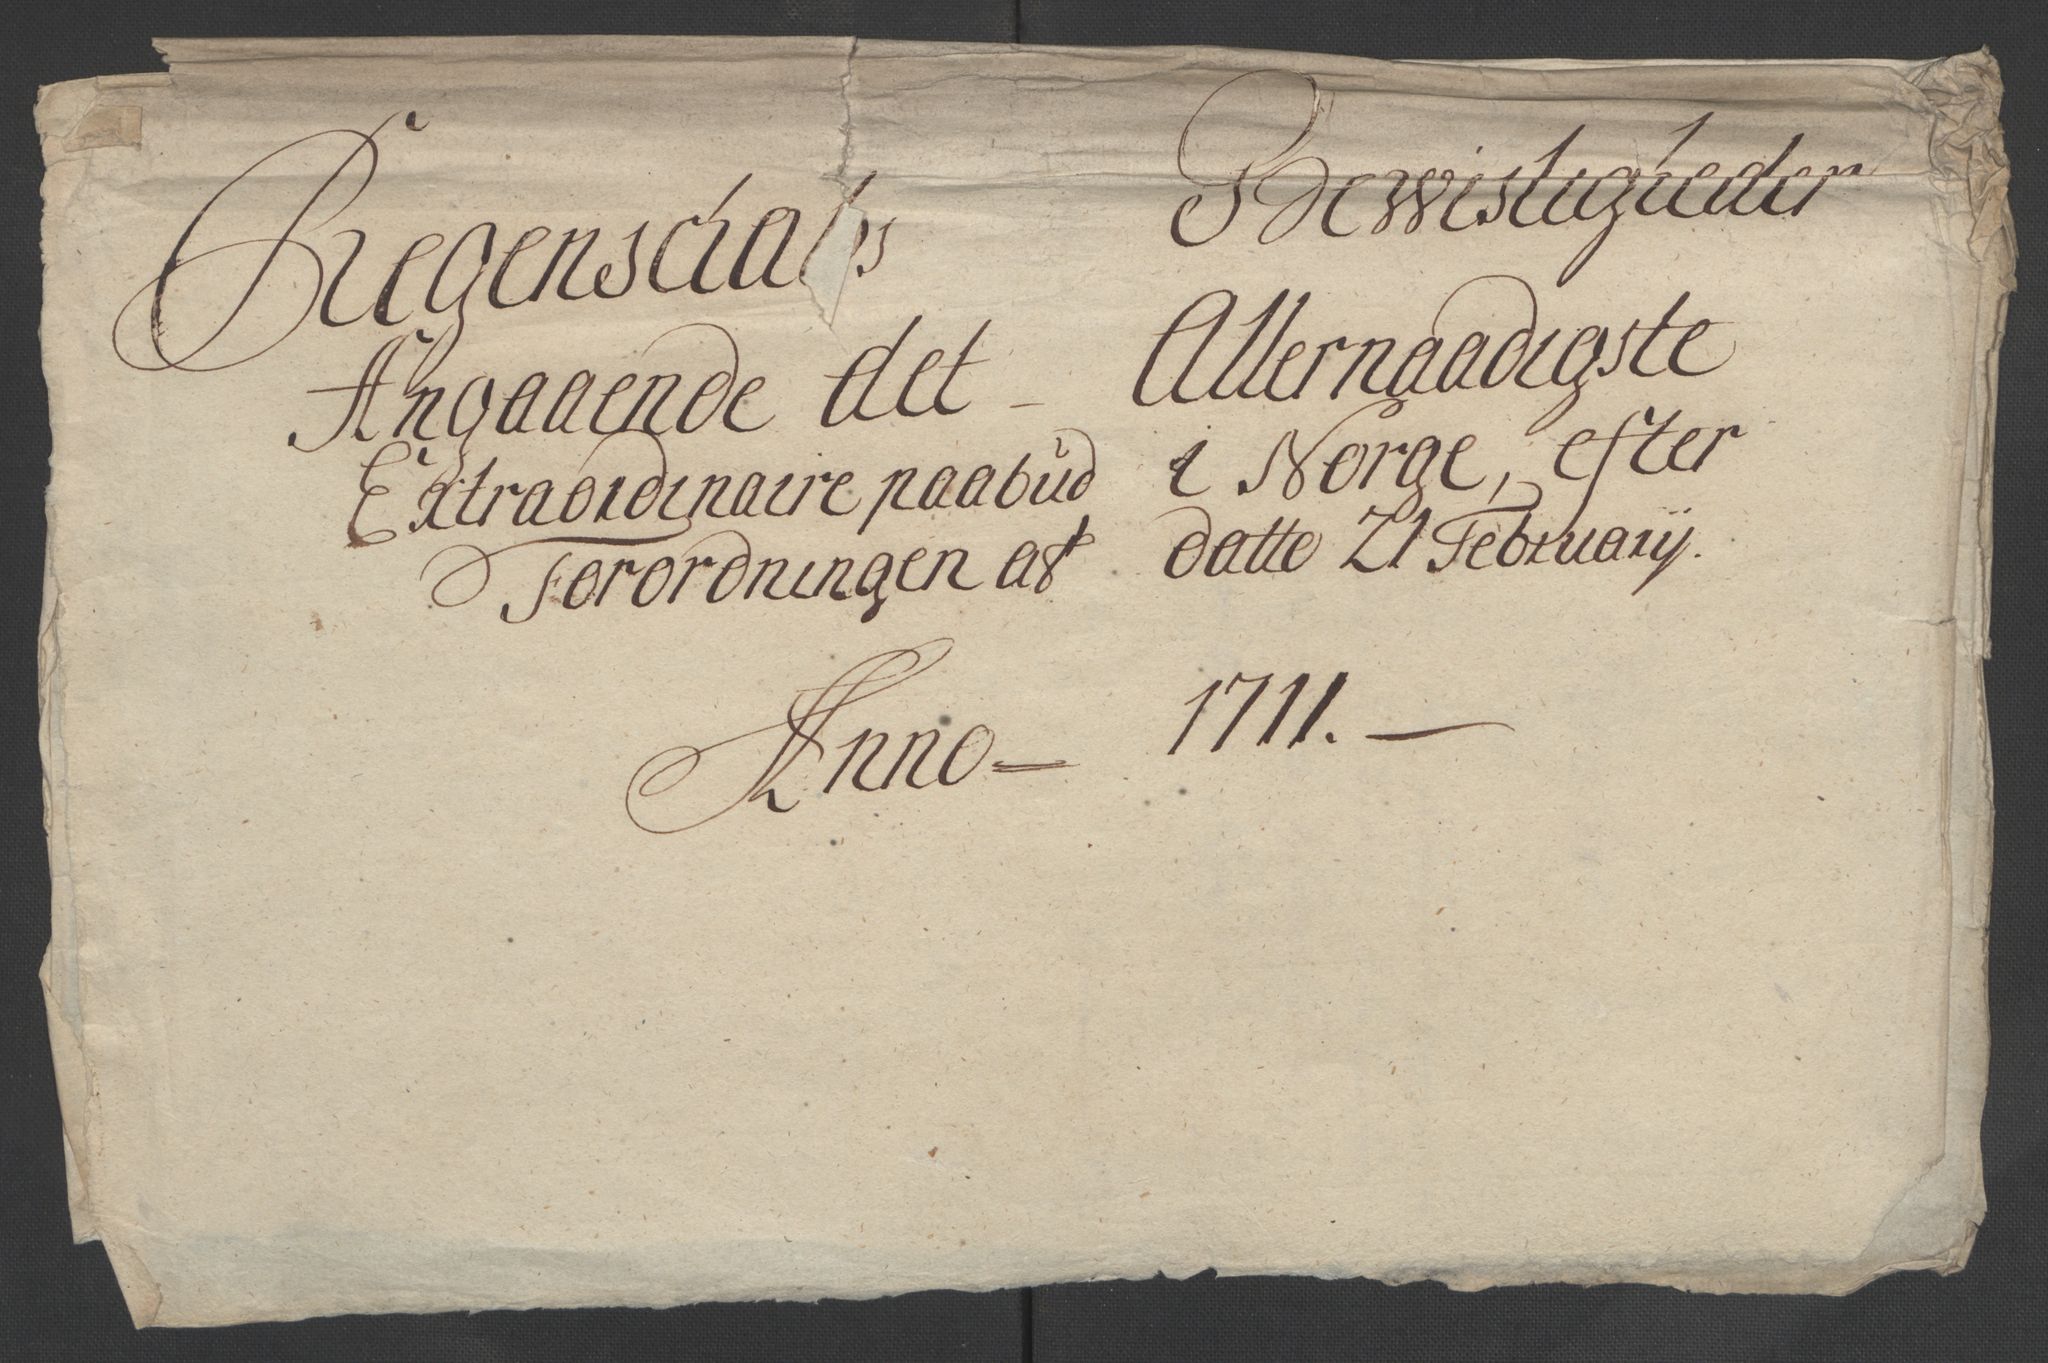 Regenschabs Bewisligheder
Angaaende det - Allernaadigste
Extraordinaire paabud i Norge, efter
Forordningen af datto 21 Februarij.
Anno 1711.